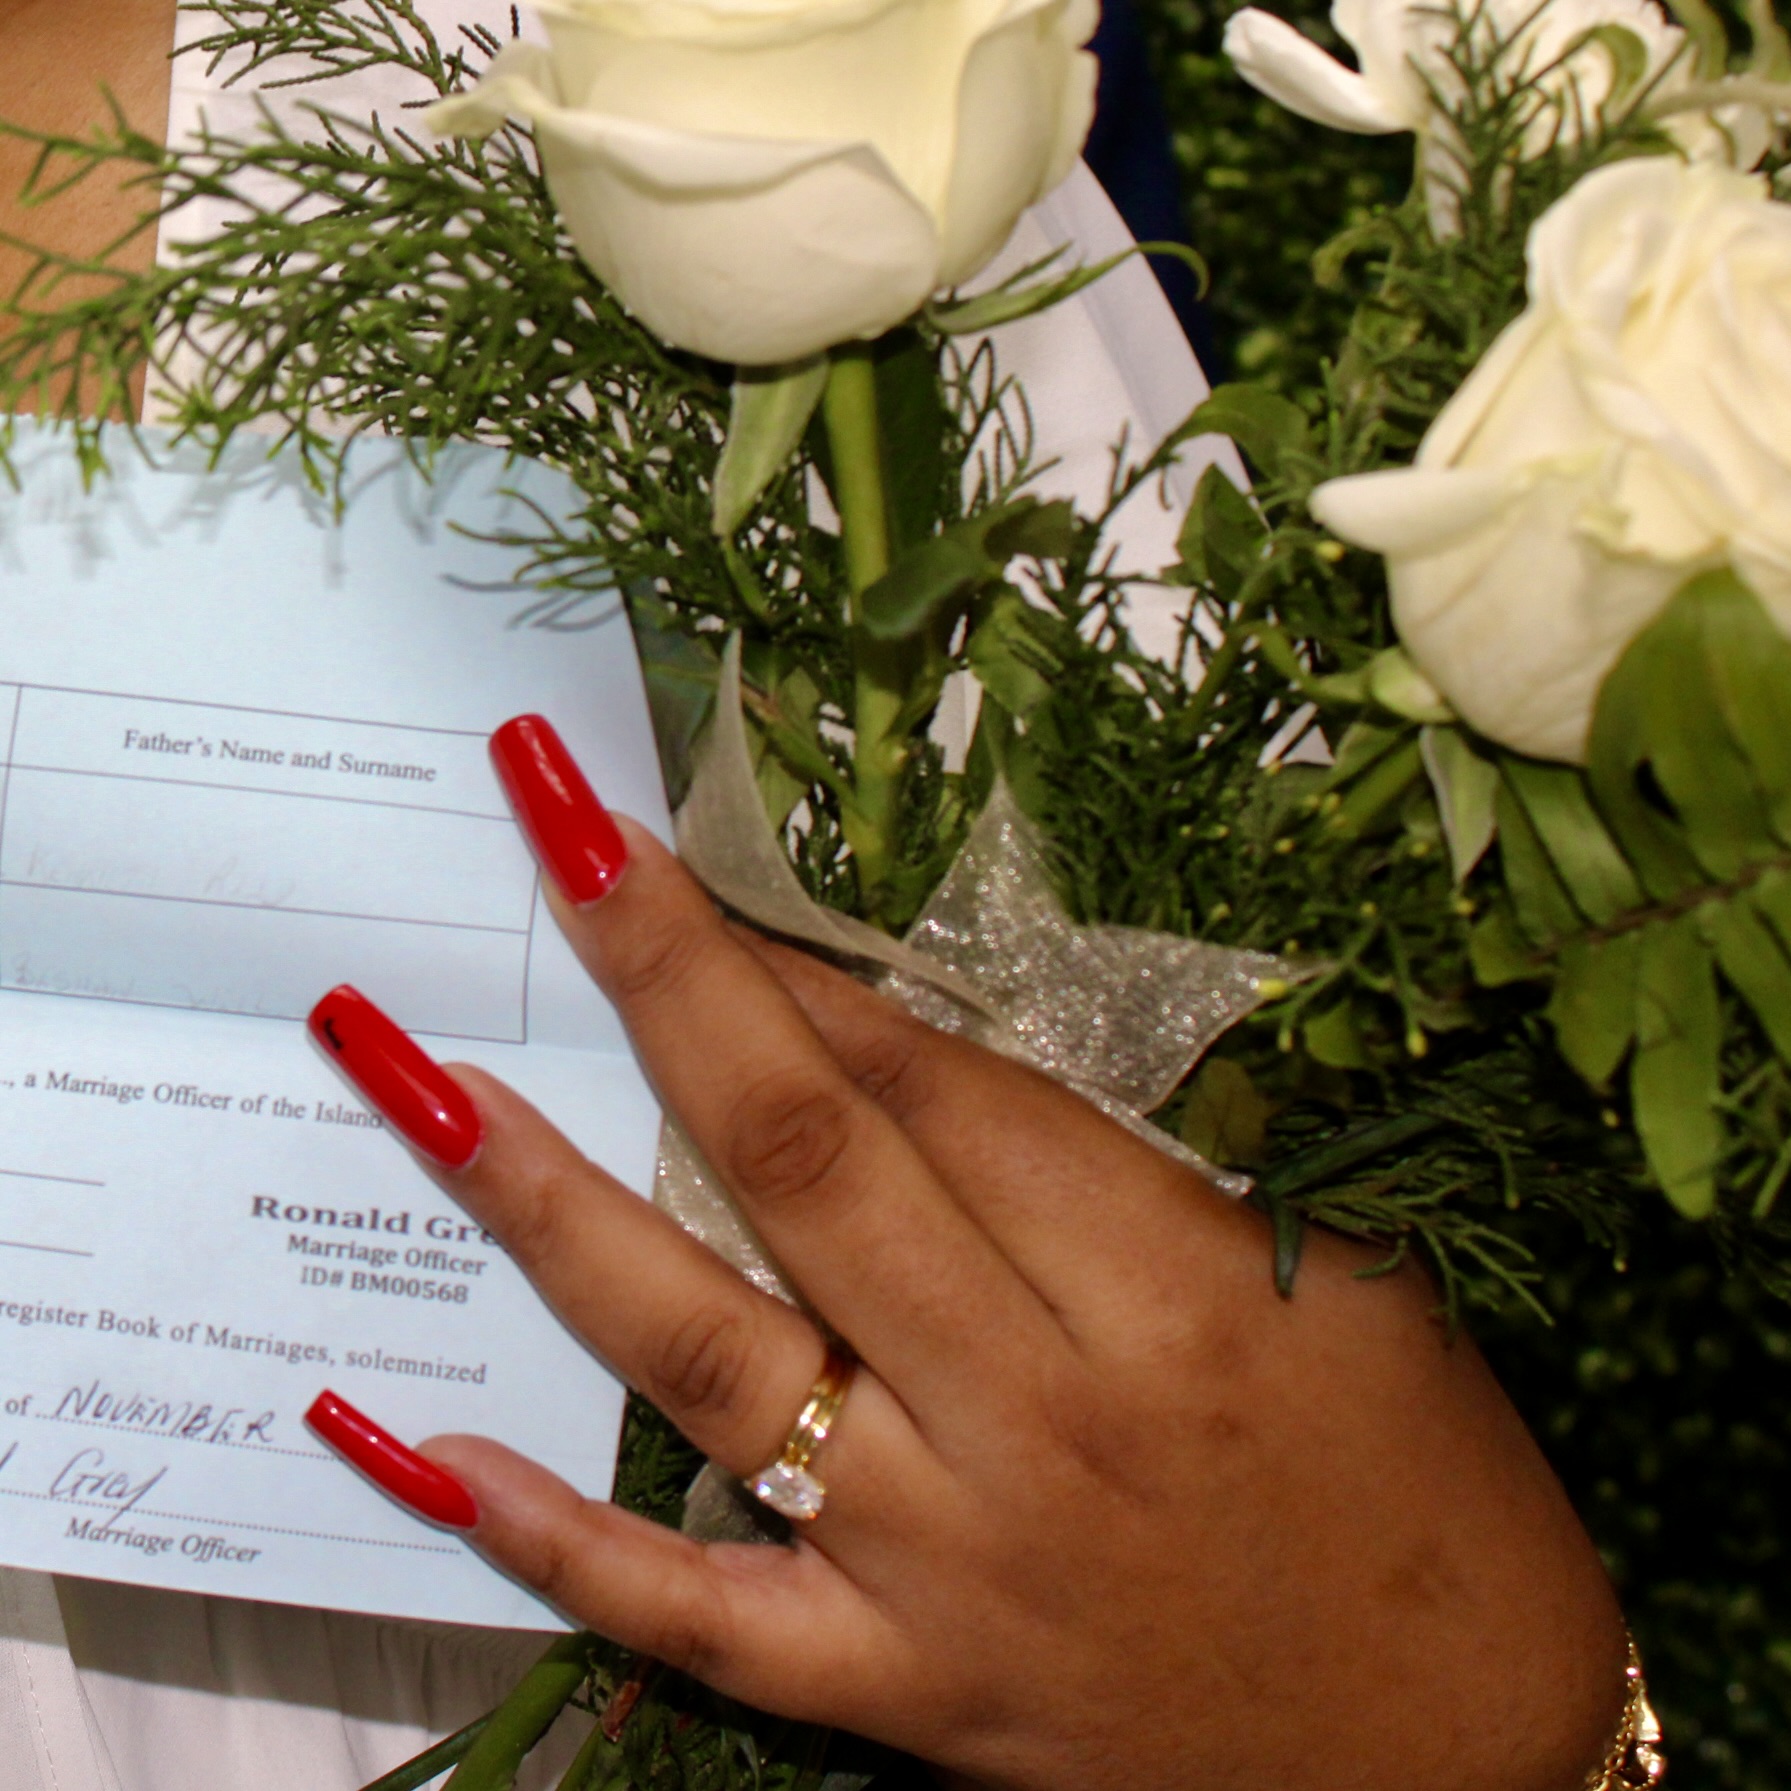 Father's Name and Surname
, a Marriage Officer of the Island
Ronald Gre
Marriage Officer
ID# BM00568
register Book of Marriages, solemnized
of NOVEMBER
Grey
Marriage Officer